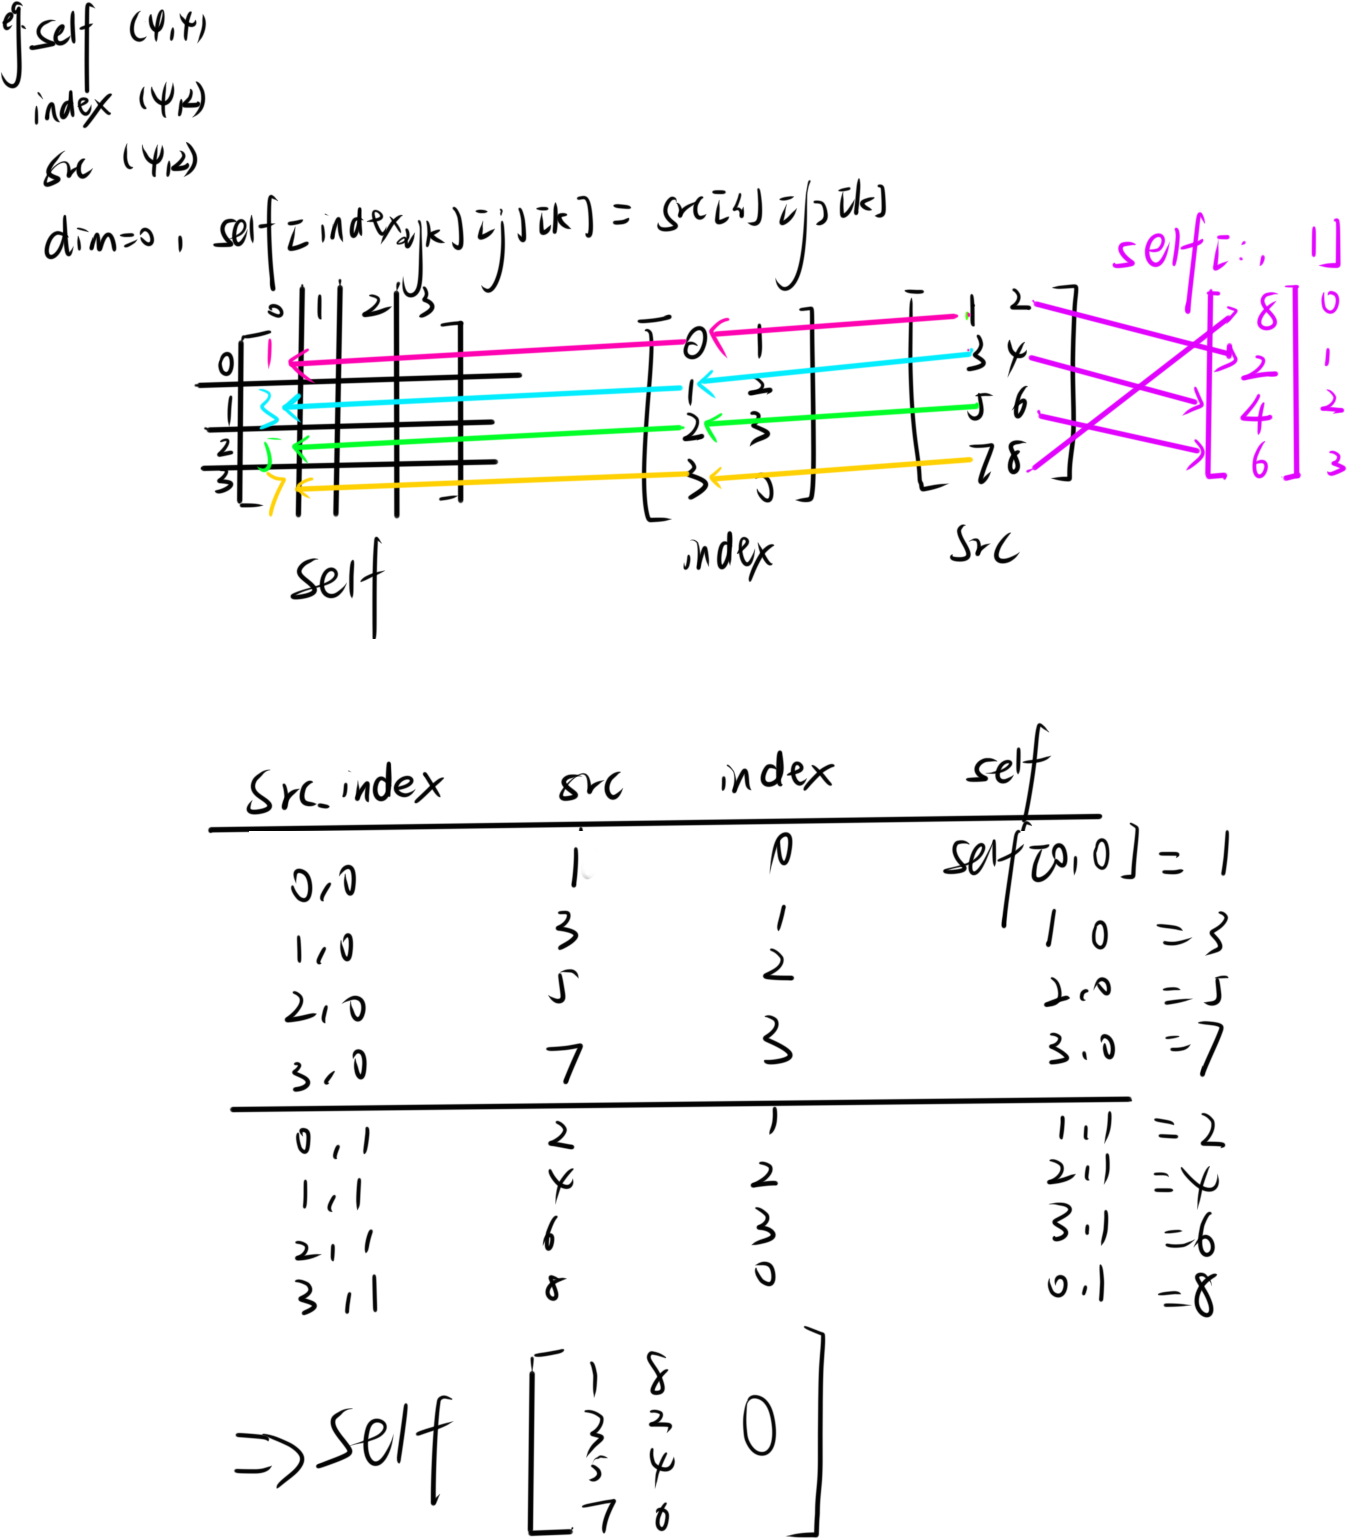 eg. self (4,4)
index (4,2)
src (4,2)
dim=0, self[index_ijk][j][k] = src[i][j][k]
self[:, 1]
0 1 2 3
0 1 0 1 1 2 8 0
1 3 1 2 3 4 2 1
2 5 2 3 5 6 4 2
3 7 3 0 7 8 6 3
self index src
src_index src index self
0,0 1 0 self[0,0] = 1
1,0 3 1 1 0 = 3
2,0 5 2 2,0 = 5
3,0 7 3 3,0 = 7
0,1 2 1 1,1 = 2
1,1 4 2 2,1 = 4
2,1 6 3 3,1 = 6
3,1 8 0 0,1 = 8
1 8
3 2
⇒ self 0
5 4
7 6